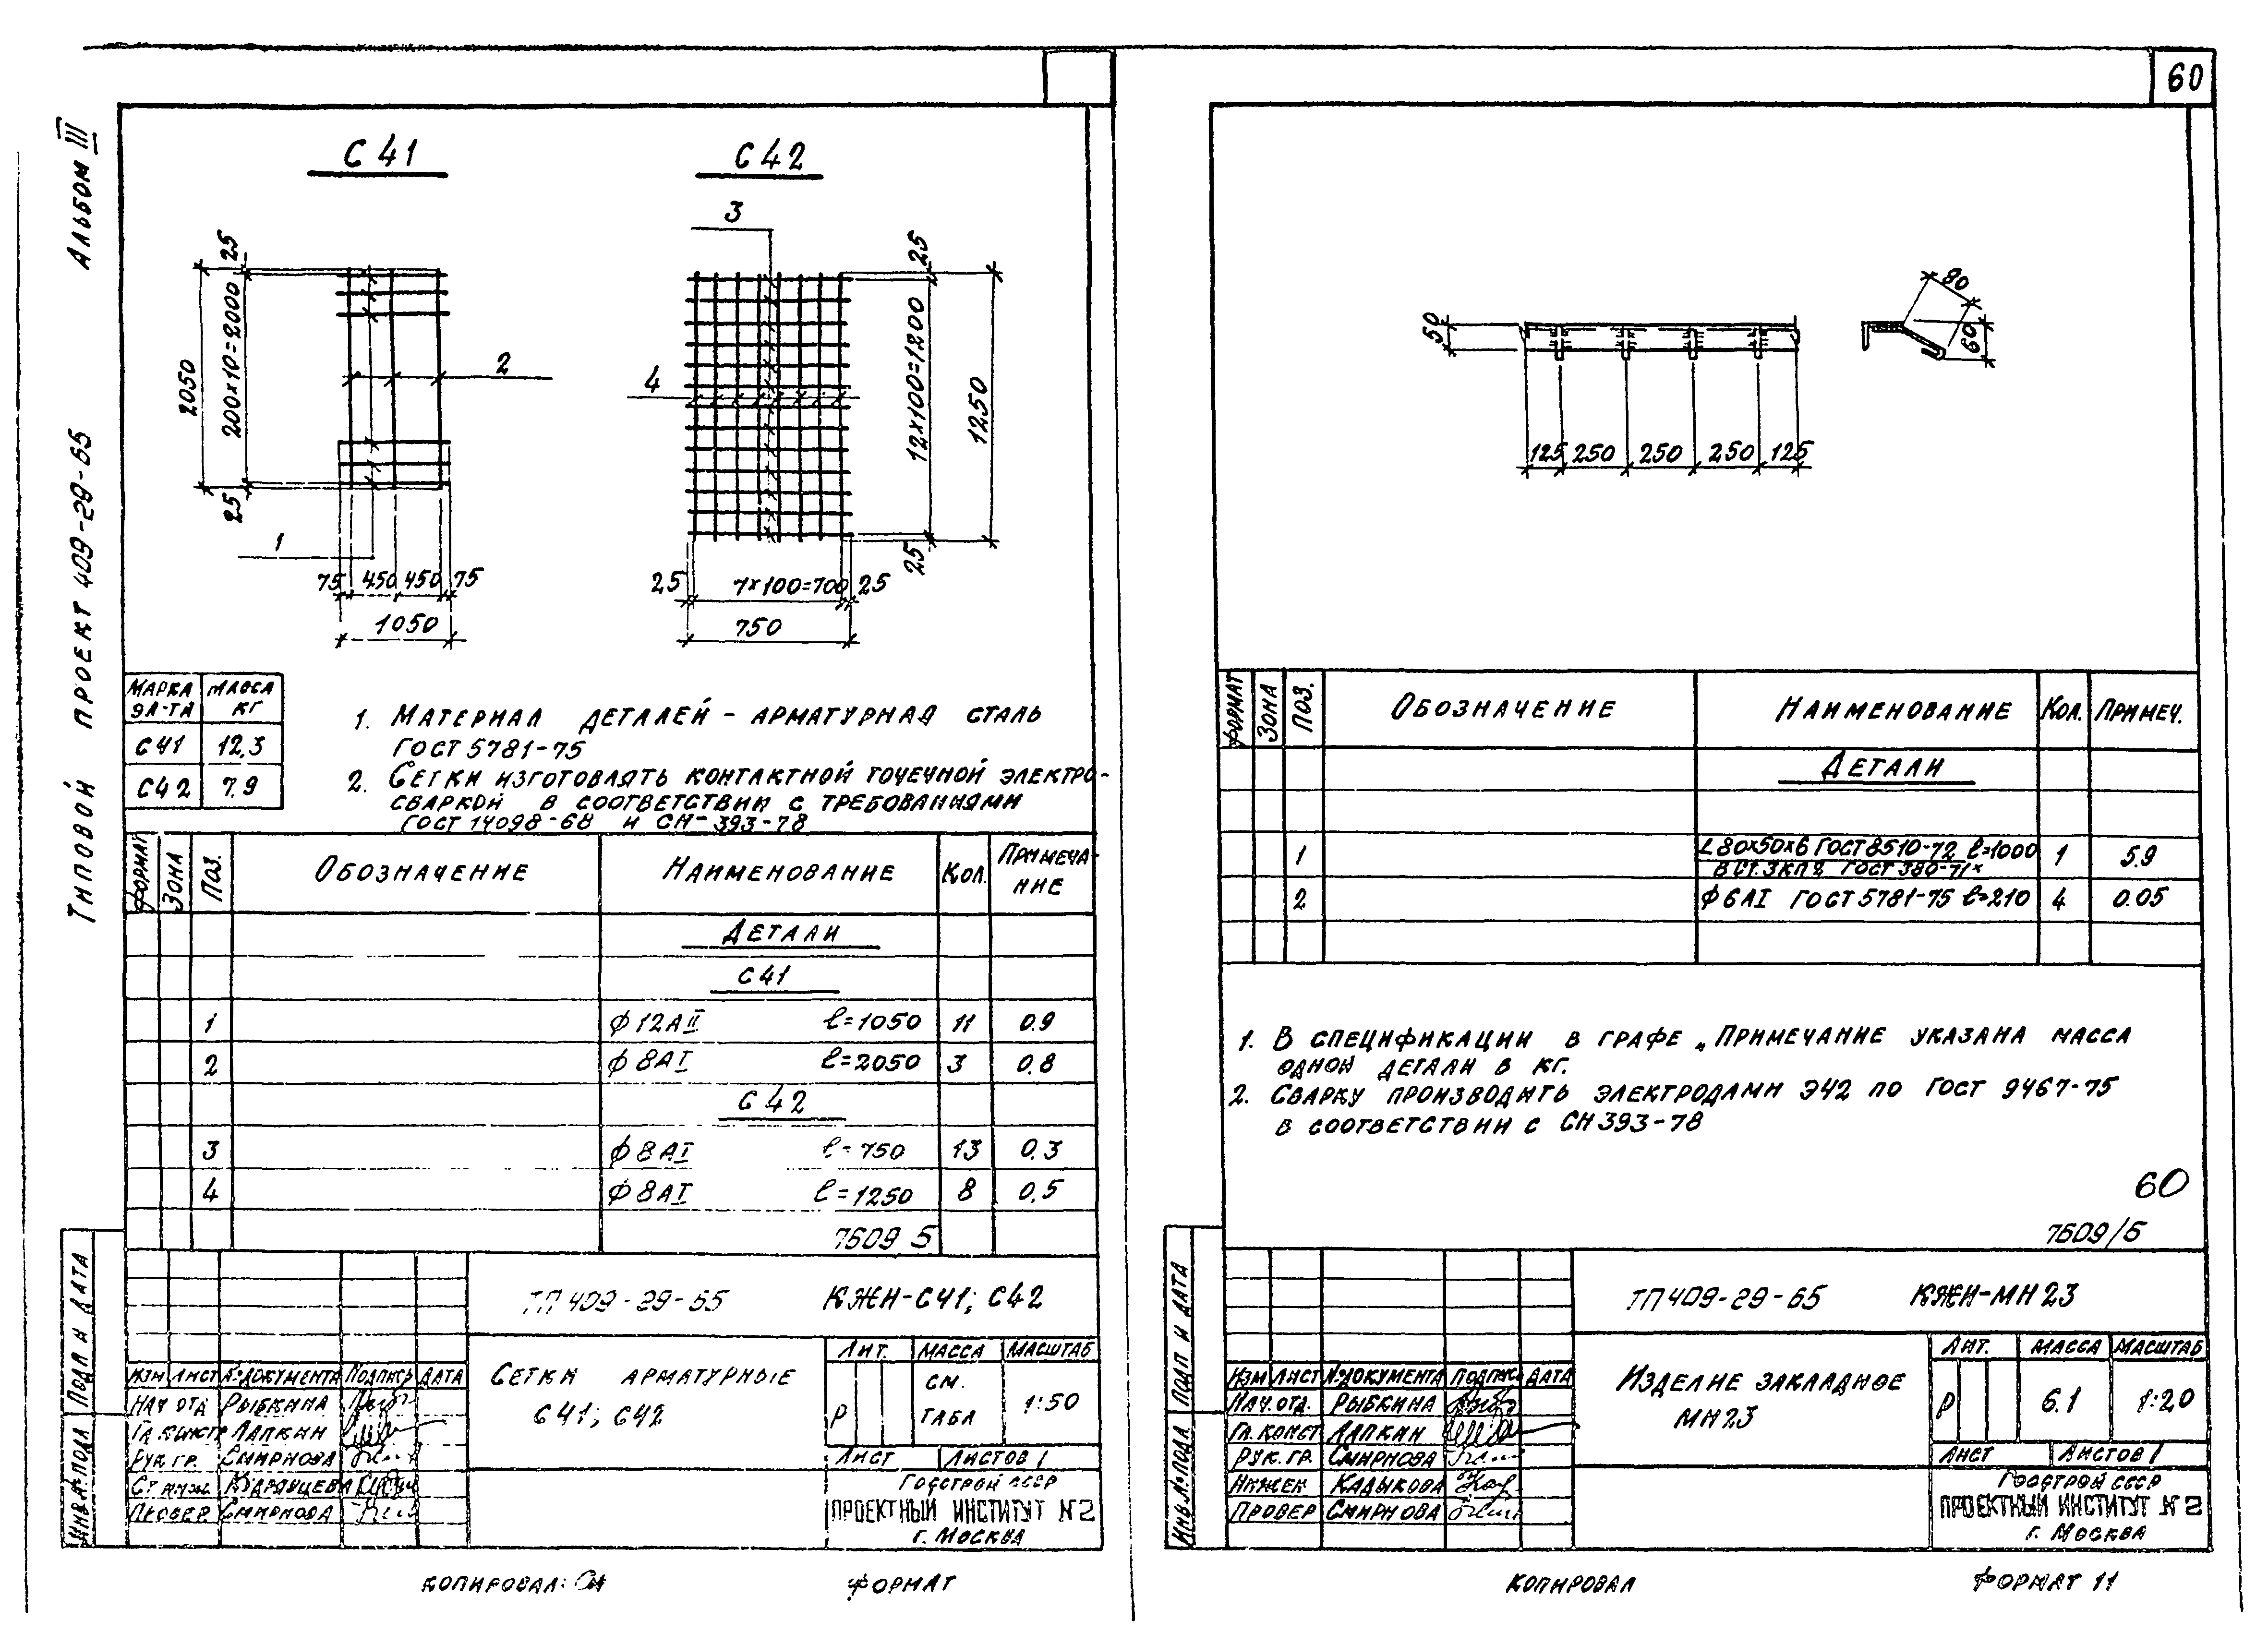 Альбом III
Типовой проект 409-29-65
С 41
С 42
3
25
200×10=2000
2050
25
2
1
75 450 450 75
1050
4
25
12×100=1200
1250
25
25 7×100=700 25
750
Марка эл-та Масса кг
С41 12,3
С42 7.9
1. Материал деталей - арматурная сталь
ГОСТ 5781-75
2. Сетки изготовлять контактной точечной электро-
сваркой в соответствии с требованиями
ГОСТ 14098-68 и СН-393-78
Формат Зона Поз. Обозначение Наименование Кол. Примеча-
ние
Детали
С41
1 ф12АII ℓ=1050 11 0.9
2 ф8АI ℓ=2050 3 0.8
С42
3 ф8АI ℓ=750 13 0.3
4 ф8АI ℓ=1250 8 0.5
7609 5
ТП 409-29-65 КЖН-С41; С42
Сетки арматурные
С41; С42
Лит. Масса Масштаб
Р см. табл 1:50
Лист Листов 1
Госстрой СССР
ПРОЕКТНЫЙ ИНСТИТУТ №2
г. Москва
Изм Лист №документа Подпись Дата
Нач отд Рыбкина
Гл. констр Лапкин
Рук гр. Смирнова
Ст. инж Кудрявцева
Провер Смирнова
Инв.№подл Подп и дата
Копировал:
Формат
60
50
125 250 250 250 125
80
60
Формат Зона Поз. Обозначение Наименование Кол. Примеч.
Детали
1 L80×50×6 ГОСТ 8510-72 ℓ=1000 1 5.9
ВСт.3кп2 ГОСТ 380-71*
2 ф6АI ГОСТ 5781-75 ℓ=210 4 0.05
1. В спецификации в графе „Примечание указана масса
одной детали в кг.
2. Сварку производить электродами Э42 по ГОСТ 9467-75
в соответствии с СН 393-78
60
7609/5
ТП 409-29-65 КЖН-МН23
Изделие закладное
МН23
Лит. Масса Масштаб
Р 6.1 1:20
Лист Листов 1
Госстрой СССР
ПРОЕКТНЫЙ ИНСТИТУТ №2
г. Москва
Изм Лист №документа Подпись Дата
Нач.отд. Рыбкина
Гл. конст Лапкин
Рук. гр. Смирнова
Инжен Кадыкова
Провер Смирнова
Инв.№подл Подп и дата
Копировал
Формат 11